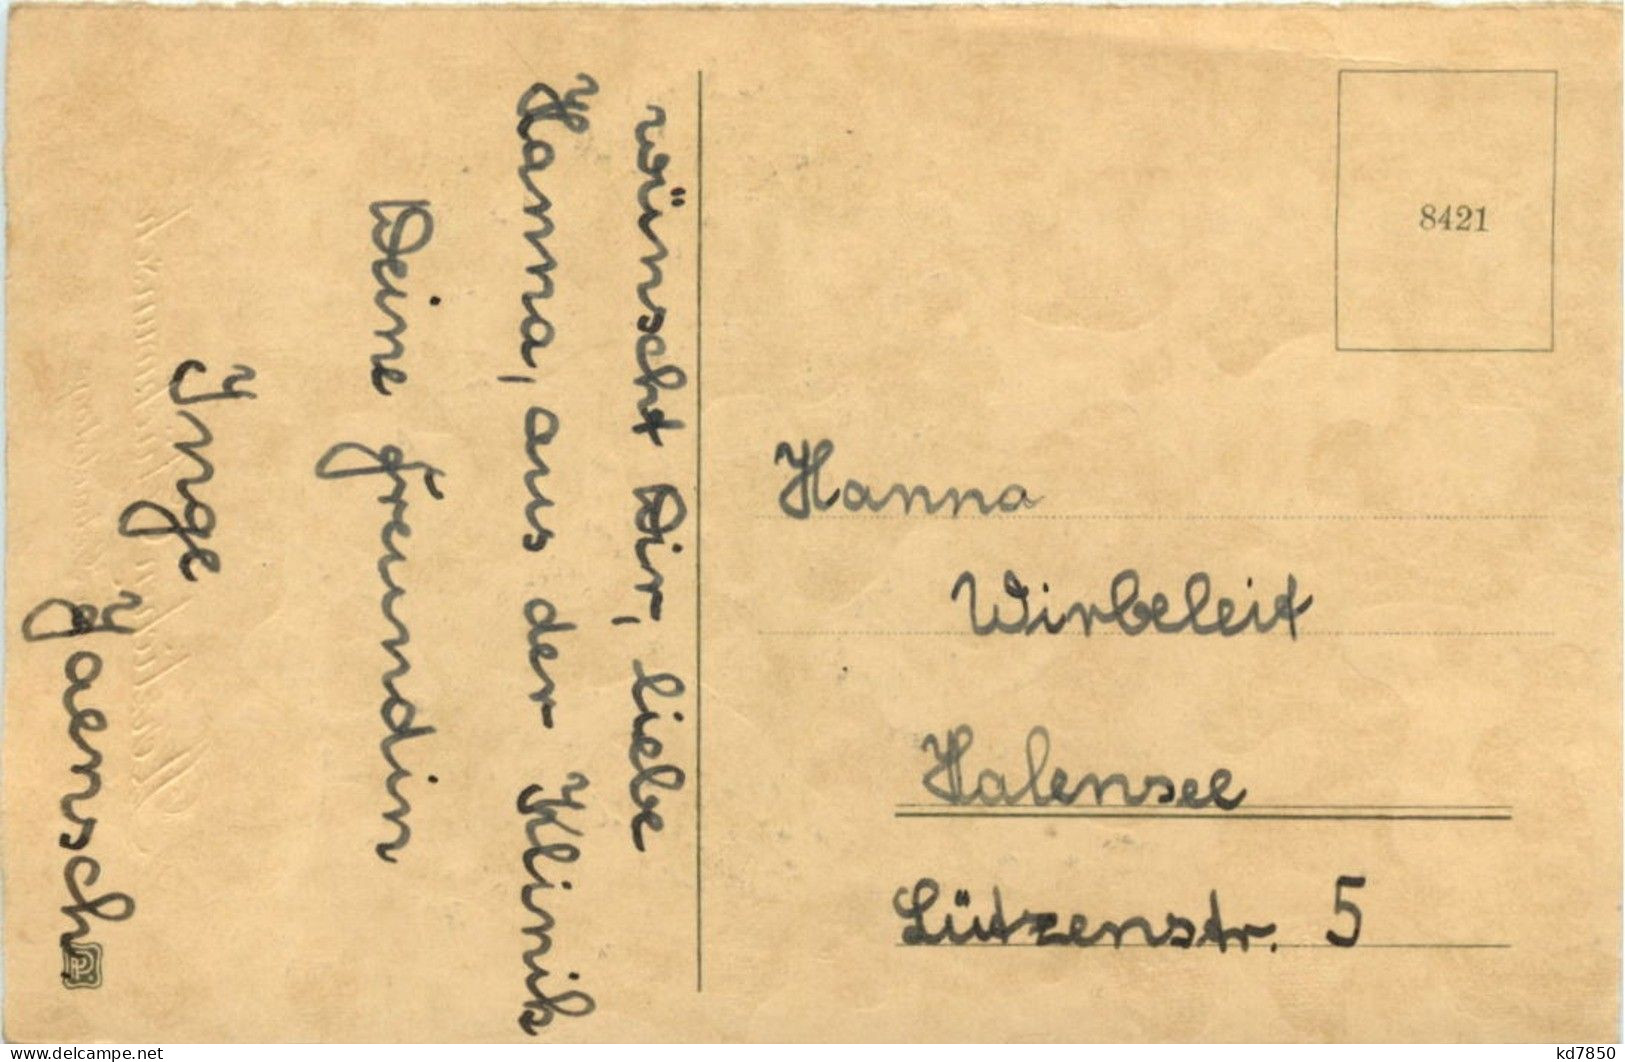 wünscht Dir, liebe
Hanna, aus der Klinik
Deine Freundin
Inge
Jaensch.
8421
Hanna
Wirbeleit
Halensee
Lützenstr. 5
delcampe.net
kd7850